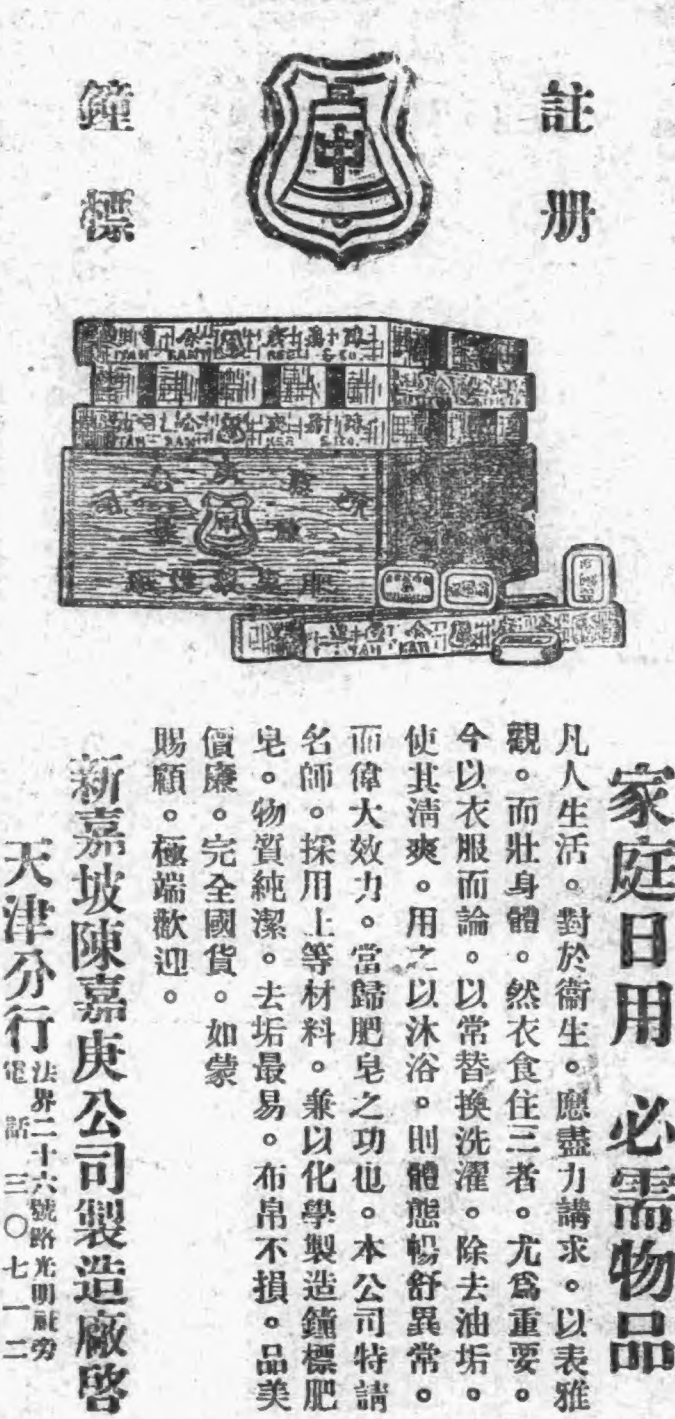 註册
鐘標
中
家庭日用 必需物品
凡人生活。對於衞生。應盡力講求。以表雅
觀。而壯身體。然衣食住三者。尤爲重要。
今以衣服而論。以常替換洗濯。除去油垢。
使其清爽。用之以沐浴。則體態暢舒異常。
而偉大效力。當歸肥皂之功也。本公司特請
名師。採用上等材料。兼以化學製造鐘標肥
皂。物質純潔。去垢最易。布帛不損。品美
價廉。完全國貨。如蒙
賜顧。極端歡迎。
新嘉坡陳嘉庚公司製造廠啓
天津分行
法界二十六號路光明 旁
電話 三〇七一二